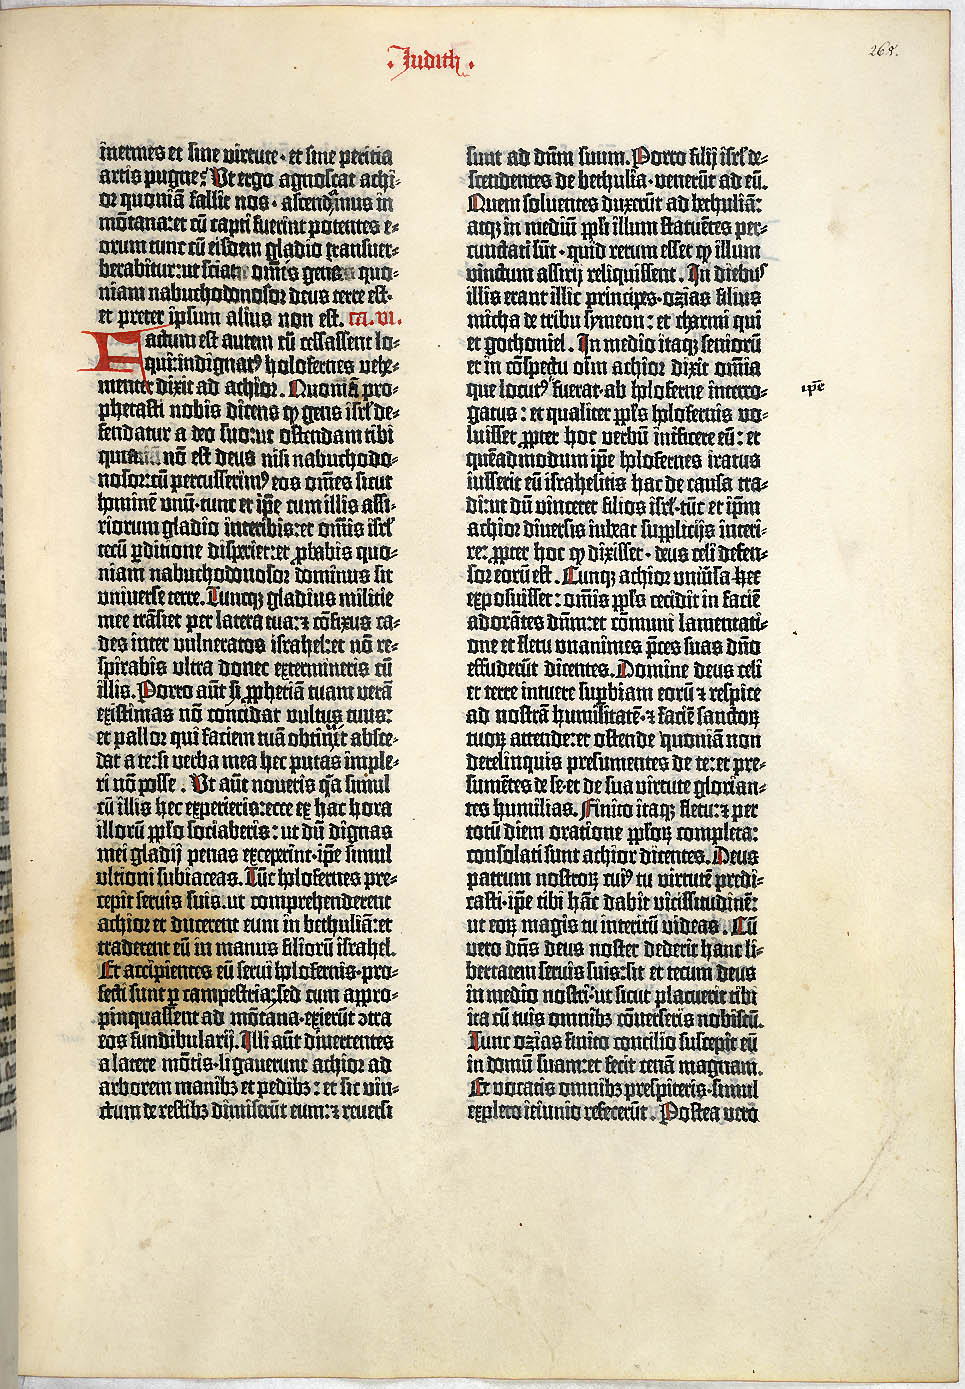 Judith
265.
inermes et sine virtute· et sine peritia
artis pugne? Vt ergo agnoscat achi-
or quoniā fallit nos · ascendamus in
mōtana: et cū capti fuerint potentes e-
orum tunc cū eisdem gladio transver-
berabitur: ut sciat omīs gens quo-
niam nabuchodonosor deus terre est·
et preter ipsum alius non est. ca. vi.
Factum est autem cū cessassent lo-
qui: indignatꝰ holofernes vehe-
menter dixit ad achior. Quoniā pro-
phetasti nobis dicens ꝙ gens isrl' de-
fendatur a deo suo: ut ostendam tibi
quoniam nō est deus nisi nabuchodo-
nosor: cū percusserimꝰ eos omēs sicut
hominē vnū· tunc et ip̄e cum illis assi-
riorum gladio interibis: et omīs isrl'
tecū ꝑditione disperiet: et ꝓbabis quo-
niam nabuchodonosor dominus sit
universe terre. Tuncqꝫ gladius militie
mee trāsiet per latera tua: ⁊ cōfixus ca-
des inter vulneratos israhel: et nō re-
spirabis ultra donec extermineris cū
illis. Porro aūt si ꝓphetiā tuam verā
existimas nō concidat vultus tuus:
et pallor qui faciem tuā obtinet absce-
dat a te: si verba mea hec putas imple-
ri nō posse. Vt aūt noveris qͣa simul
cū illis hec experieris: ecce ex hac hora
illorū ꝑplo sociaberis: ut dū dignas
mei gladij penas exceperint· ip̄e simul
ultioni subiaceas. Tūc holofernes pre-
cepit servis suis· ut comprehenderent
achior et ducerent eum in bethuliā: et
traderent eū in manus filiorū israhel.
Et accipientes eū servi holofernis· pro-
fecti sunt ꝑ campestria: sed cum appro-
pinquassent ad mōtana· exierūt ɔtra
eos fundibularij. Illi aūt divertentes
a latere mōtis· ligaverunt achior ad
arborem manibꝫ et pedibꝫ: et sic vin-
ctum de restibꝫ dimiserūt eum: ⁊ reversi
sunt ad dūm suum. Porro filij isrl' de-
scendentes de bethulia· venerūt ad eū.
Quem solventes duxerūt ad bethuliā:
atqꝫ in mediū ꝑpli illum statuētes per-
cunctati sūt · quid rerum esset ꝙ illum
vinctum assirij reliquissent. In diebus
illis erant illic principes· ozias filius
micha de tribu symeon: et charmi qui
et gothoniel. In medio itaqꝫ seniorū
et in cōspectu oīm achior dixit omīa
que locutꝰ fuerat· ab holoferne interro-
gatus: et qualiter ꝑpls holofernis vo-
luisset ꝓpter hoc verbū īnificere eū: et
quēadmodum ip̄e holofernes iratus
iusserit eū israhelitis hac de causa tra-
di: ut dū vinceret filios isrl'· tūc et ip̄m
achior diversis iubeat supplicijs interi-
re: ꝓpter hoc ꝙ dixisset · deus celi defen-
sor eorū est. Cunqꝫ achior vniūsa hec
exposuisset: omīs ꝑpls cecidit in faciē
adorātes dūm: et cōmuni lamentati-
one et fletu vnanimes p̄ces suas dūo
effuderūt dicentes. Domine deus celi
et terre intuere suꝑbiam eorū ⁊ respice
ad nostrā humilitatē· ⁊ faciē sanctoꝝ
tuoꝝ attende: et ostende quoniā non
derelinquis presumentes de te: et pre-
sumētes de se· et de sua virtute glorian-
tes humilias. Finito itaqꝫ fletu: ⁊ per
totū diem oratione ꝑploꝝ completa:
consolati sunt achior dicentes. Deus
patrum nostroꝝ cuiꝰ tu virtutē predi-
casti· ip̄e tibi hāc dabit vicissitudinē:
ut eoꝝ magis tu interitū videas. Cū
vero dūs deus noster dederit hanc li-
bertatem servis suis: sit et tecum deus
in medio nostri: ut sicut placuerit tibi
ita cū tuis omnibꝫ cōverseris nobiscū.
Tunc ozias finito concilio suscepit eū
in domū suam: et fecit cenā magnam.
Et vocatis omnibꝫ prespiteris· simul
expleto ieiunio refecerūt. Postea vero
ip̄e